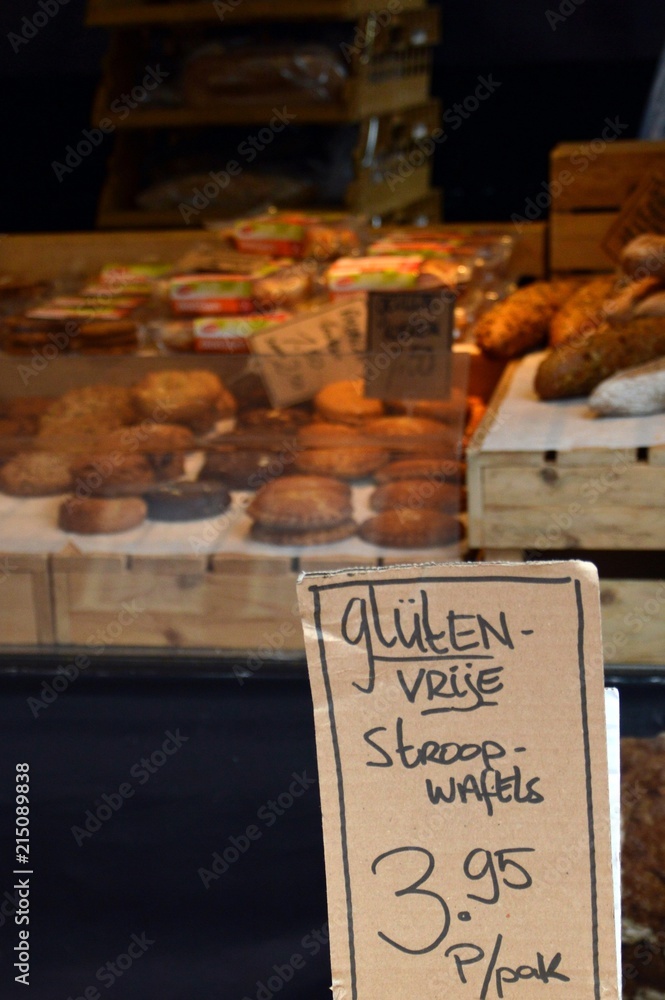 glüten-
vrije
Stroop-
wafels
3.95
p/pak
Adobe Stock
215089838